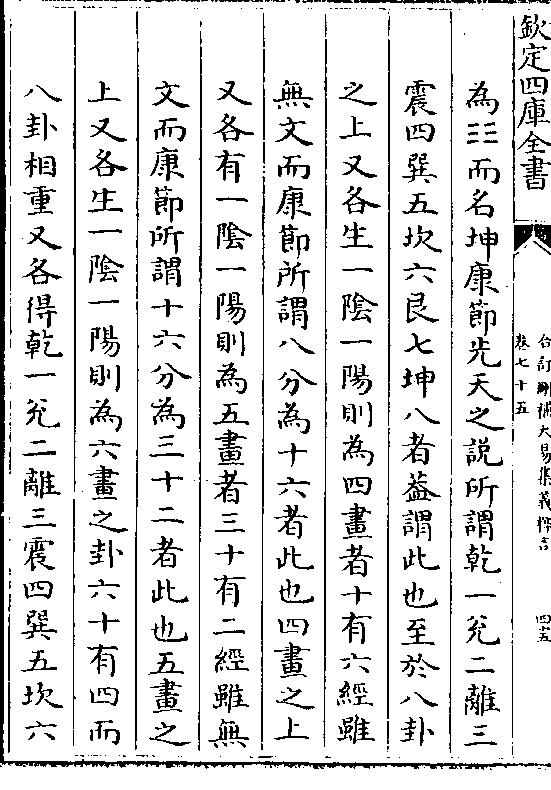 欽定四庫全書
合訂刪補大易集義稡言
卷七十五
四五
為☷而名坤康節先天之說所謂乾一兊二離三
震四巽五坎六艮七坤八者葢謂此也至於八卦
之上又各生一陰一陽則為四畫者十有六經雖
無文而康節所謂八分為十六者此也四畫之上
又各有一陰一陽則為五畫者三十有二經雖無
文而康節所謂十六分為三十二者此也五畫之
上又各生一陰一陽則為六畫之卦六十有四而
八卦相重又各得乾一兊二離三震四巽五坎六